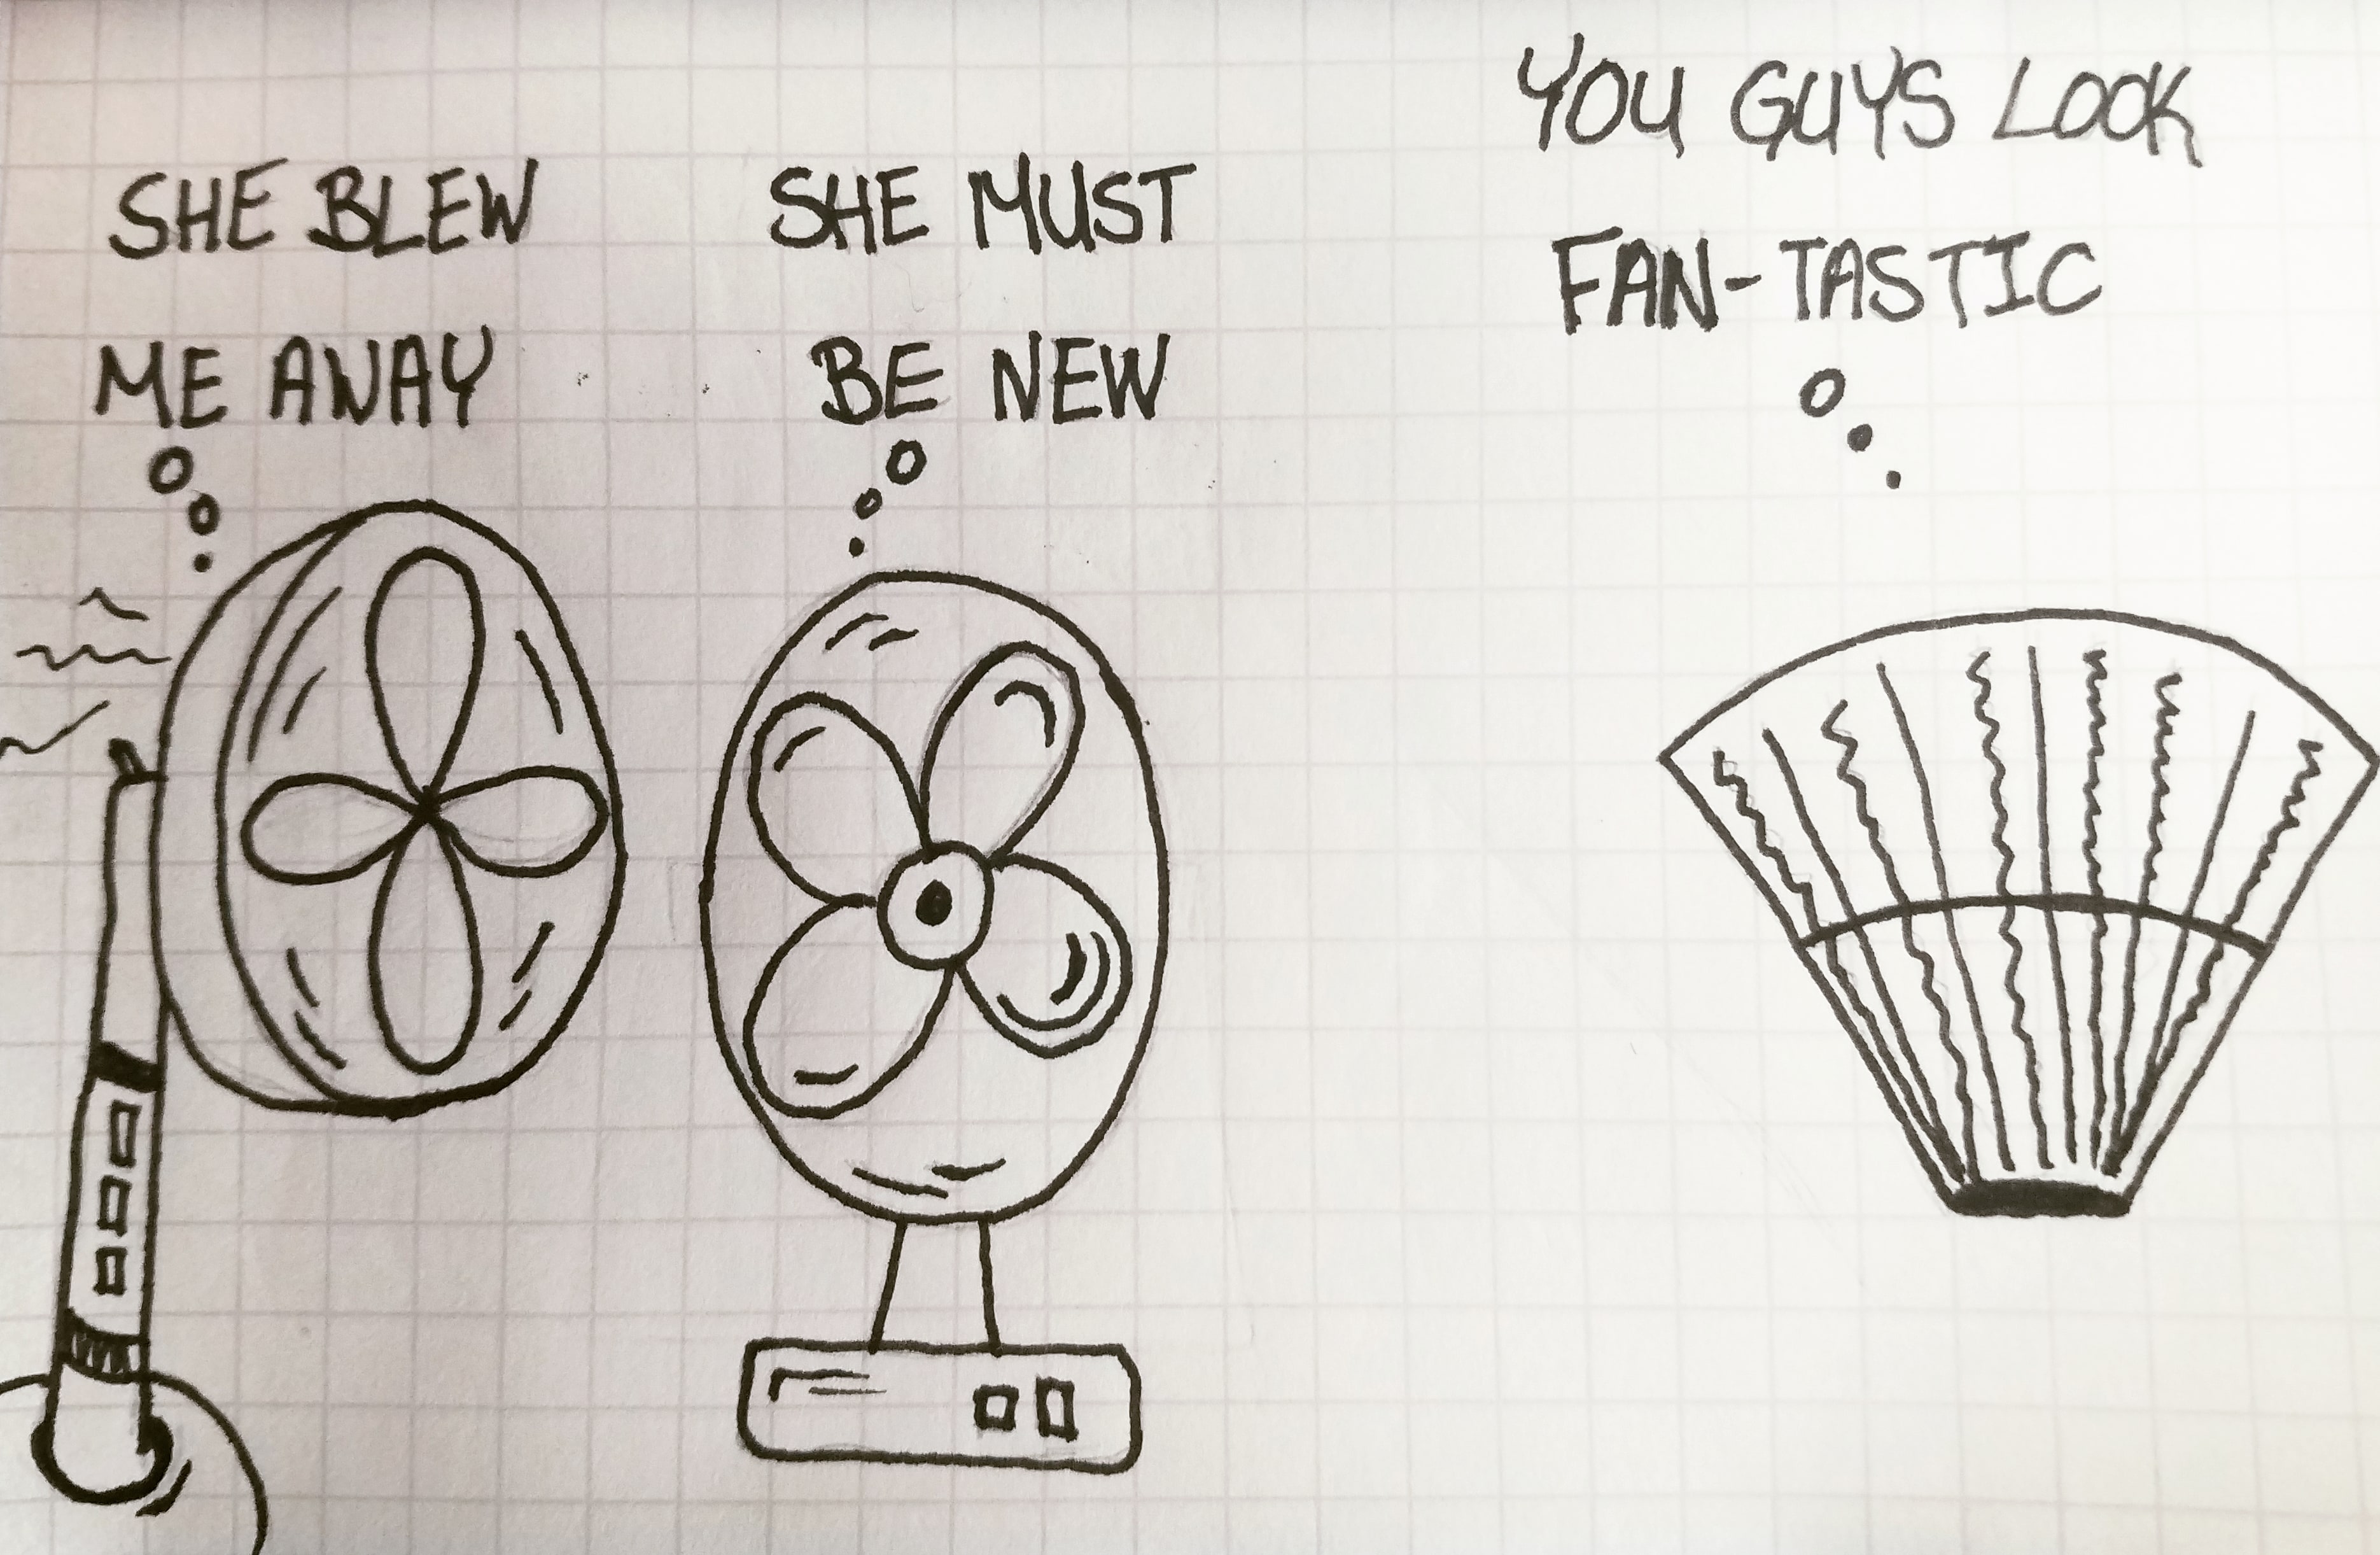 SHE BLEW
ME AWAY
SHE MUST
BE NEW
YOU GUYS LOOK
FAN-TASTIC